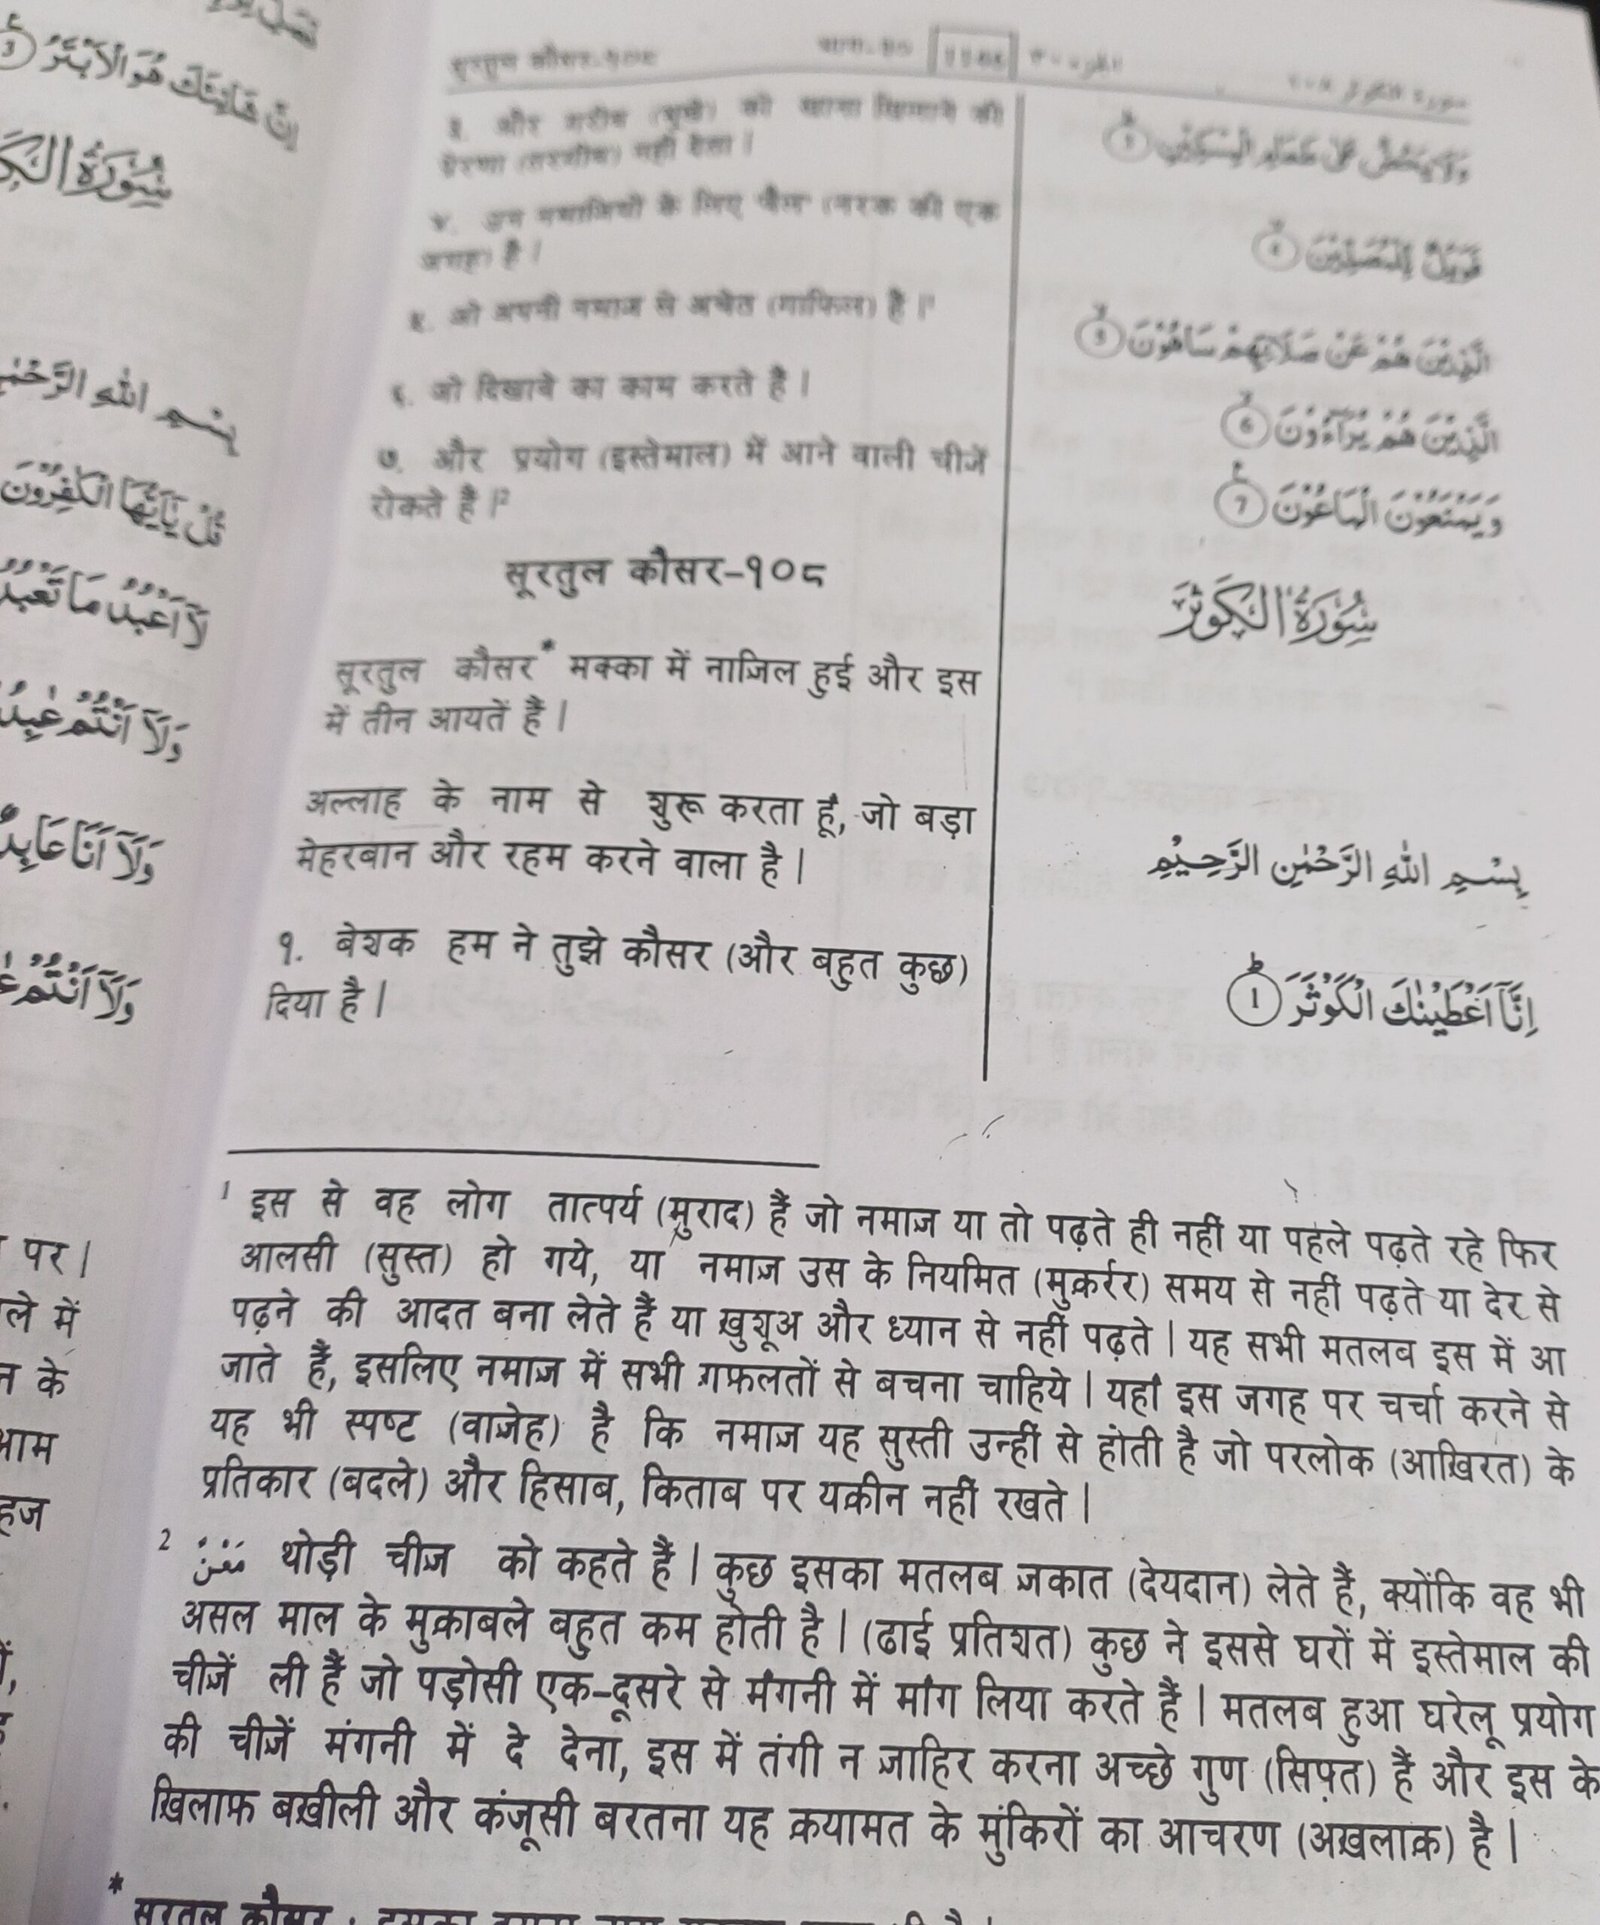 सूरतुल कौसर-१०८ भाग-३०
३. और गरीब (भूखे) को खाना खिलाने की
प्रेरणा (तरगीब) नहीं देता |
४. उन नमाजियों के लिए 'वैल' (नरक की एक
जगह) है |
५. जो अपनी नमाज से अचेत (गाफिल) हैं |¹
६. जो दिखावे का काम करते हैं |
७. और प्रयोग (इस्तेमाल) में आने वाली चीजें
रोकते हैं |²
सूरतुल कौसर-१०८
सूरतुल कौसर* मक्का में नाजिल हुई और इस
में तीन आयतें हैं |
अल्लाह के नाम से शुरू करता हूं, जो बड़ा
मेहरबान और रहम करने वाला है |
१. बेशक हम ने तुझे कौसर (और बहुत कुछ)
दिया है |
وَلَا يَحُضُّ عَلٰى طَعَامِ الْمِسْكِيْنِ 3
فَوَيْلٌ لِّلْمُصَلِّيْنَ 4
الَّذِيْنَ هُمْ عَنْ صَلَاتِهِمْ سَاهُوْنَ 5
الَّذِيْنَ هُمْ يُرَآءُوْنَ 6
وَيَمْنَعُوْنَ الْمَاعُوْنَ 7
سُوْرَةُ الْكَوْثَرِ
بِسْمِ اللّٰهِ الرَّحْمٰنِ الرَّحِيْمِ
اِنَّآ اَعْطَيْنٰكَ الْكَوْثَرَ 1
¹ इस से वह लोग तात्पर्य (मुराद) हैं जो नमाज़ या तो पढ़ते ही नहीं या पहले पढ़ते रहे फिर
आलसी (सुस्त) हो गये, या नमाज़ उस के नियमित (मुक़र्रर) समय से नहीं पढ़ते या देर से
पढ़ने की आदत बना लेते हैं या ख़ुशूअ और ध्यान से नहीं पढ़ते | यह सभी मतलब इस में आ
जाते हैं, इसलिए नमाज़ में सभी ग़फ़लतों से बचना चाहिये | यहां इस जगह पर चर्चा करने से
यह भी स्पष्ट (वाज़ेह) है कि नमाज़ यह सुस्ती उन्हीं से होती है जो परलोक (आख़िरत) के
प्रतिकार (बदले) और हिसाब, किताब पर यक़ीन नहीं रखते |
² مَعْنٌ थोड़ी चीज़ को कहते हैं | कुछ इसका मतलब ज़कात (देयदान) लेते हैं, क्योंकि वह भी
असल माल के मुक़ाबले बहुत कम होती है | (ढाई प्रतिशत) कुछ ने इससे घरों में इस्तेमाल की
चीज़ें ली हैं जो पड़ोसी एक-दूसरे से मंगनी में मांग लिया करते हैं | मतलब हुआ घरेलू प्रयोग
की चीज़ें मंगनी में दे देना, इस में तंगी न ज़ाहिर करना अच्छे गुण (सिफ़त) हैं और इस के
ख़िलाफ़ बख़ीली और कंजूसी बरतना यह क़यामत के मुंकिरों का आचरण (अख़लाक़) है |
* सूरतुल कौसर :
اِنَّ شَانِئَكَ هُوَ الْاَبْتَرُ 3
بِسْمِ اللّٰهِ الرَّحْمٰنِ
قُلْ يٰٓاَيُّهَا الْكٰفِرُوْنَ
لَآ اَعْبُدُ مَا تَعْبُدُ
وَلَآ اَنْتُمْ عٰبِدُ
وَلَآ اَنَا عَابِدٌ
وَلَآ اَنْتُمْ
पर |
ले में
के
हज